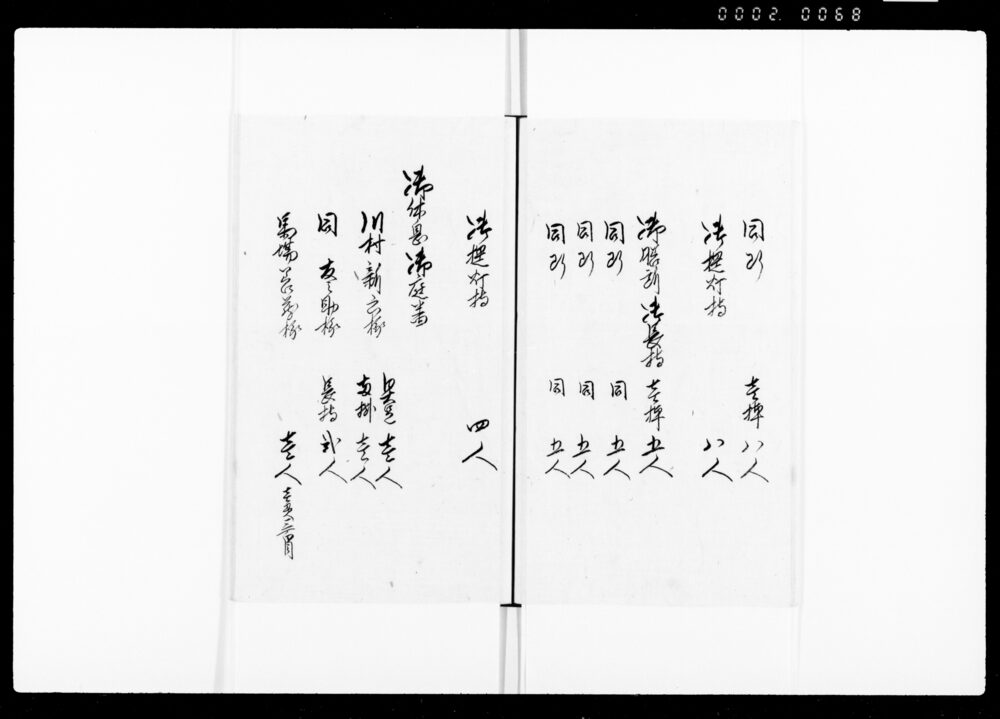 0002.0068
同断 壱棹 八人
御挑灯持 八人
御膳所御長持 壱棹 五人
同断 同 五人
同断 同 五人
同断 同 五人
御挑灯持 四人
御休息御庭番
川村新六様 具足 壱人
両掛 壱人
同 友之助様 長持 弐人
馬場 壱人